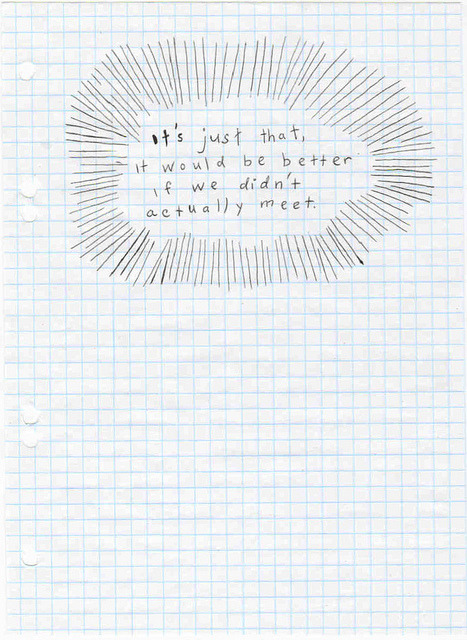 It's just that,
it would be better
if we didn't
actually meet.